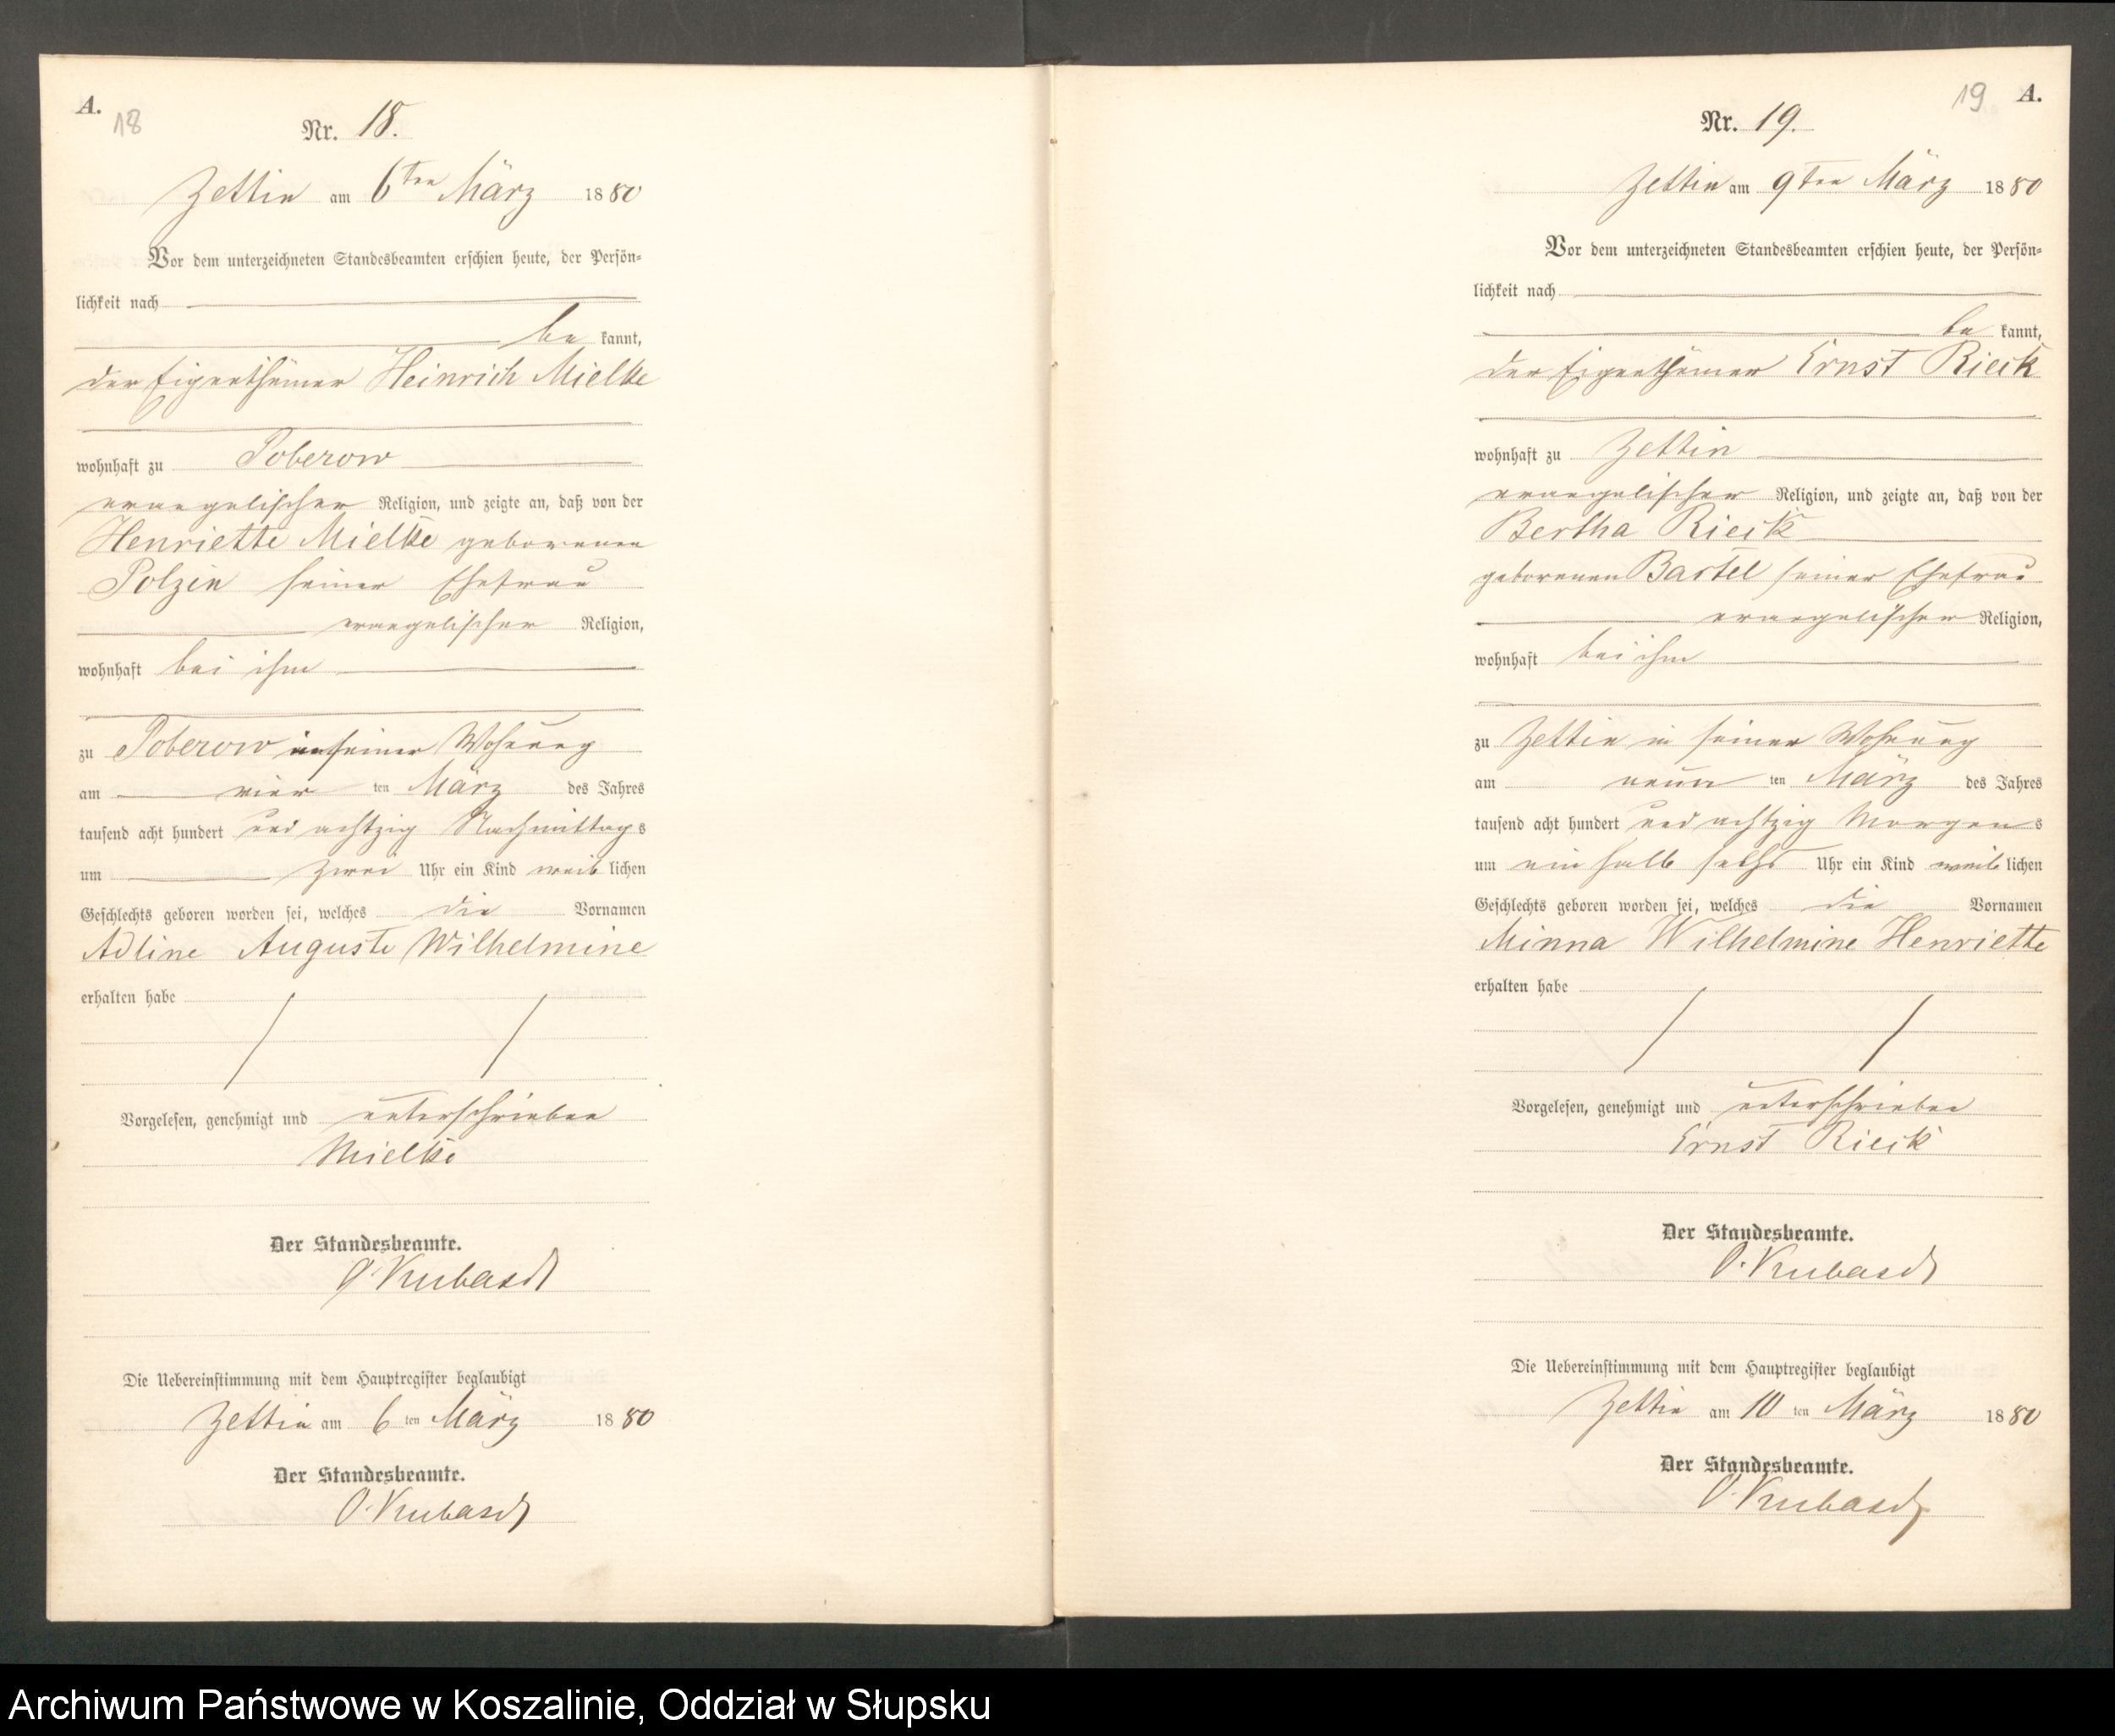 A.
18
Nr. 18.
Zettin am 6ten März 1880
Vor dem unterzeichneten Standesbeamten erschien heute, der Persön-
lichkeit nach
be kannt,
der Eigenthümer Heinrich Mielke
wohnhaft zu Poberow
evangelischer Religion, und zeigte an, daß von der
Henriette Mielke geborenen
Polzin seiner Ehefrau
evangelischer Religion,
wohnhaft bei ihm
zu Poberow in seiner Wohnung
am vier ten März des Jahres
tausend acht hundert und achtzig Nachmittags
um zwei Uhr ein Kind weiblichen
Geschlechts geboren worden sei, welches die Vornamen
Adline Auguste Wilhelmine
erhalten habe
Vorgelesen, genehmigt und unterschrieben
Mielke
Der Standesbeamte.
O. Kubasch
Die Uebereinstimmung mit dem Hauptregister beglaubigt
Zettin am 6 ten März 1880
Der Standesbeamte.
O. Kubasch
19 A.
Nr. 19.
Zettin am 9ten März 1880
Vor dem unterzeichneten Standesbeamten erschien heute, der Persön-
lichkeit nach
be kannt,
der Eigenthümer Ernst Rieck
wohnhaft zu Zettin
evangelischer Religion, und zeigte an, daß von der
Bertha Rieck
geborenen Bartel seiner Ehefrau
evangelischer Religion,
wohnhaft bei ihm
zu Zettin in seiner Wohnung
am neun ten März des Jahres
tausend acht hundert und achtzig Morgens
um ein halb sechs Uhr ein Kind weiblichen
Geschlechts geboren worden sei, welches die Vornamen
Minna Wilhelmine Henriette
erhalten habe
Vorgelesen, genehmigt und unterschrieben
Ernst Rieck
Der Standesbeamte.
O. Kubasch
Die Uebereinstimmung mit dem Hauptregister beglaubigt
Zettin am 10 ten März 1880
Der Standesbeamte.
O. Kubasch
Archiwum Państwowe w Koszalinie, Oddział w Słupsku